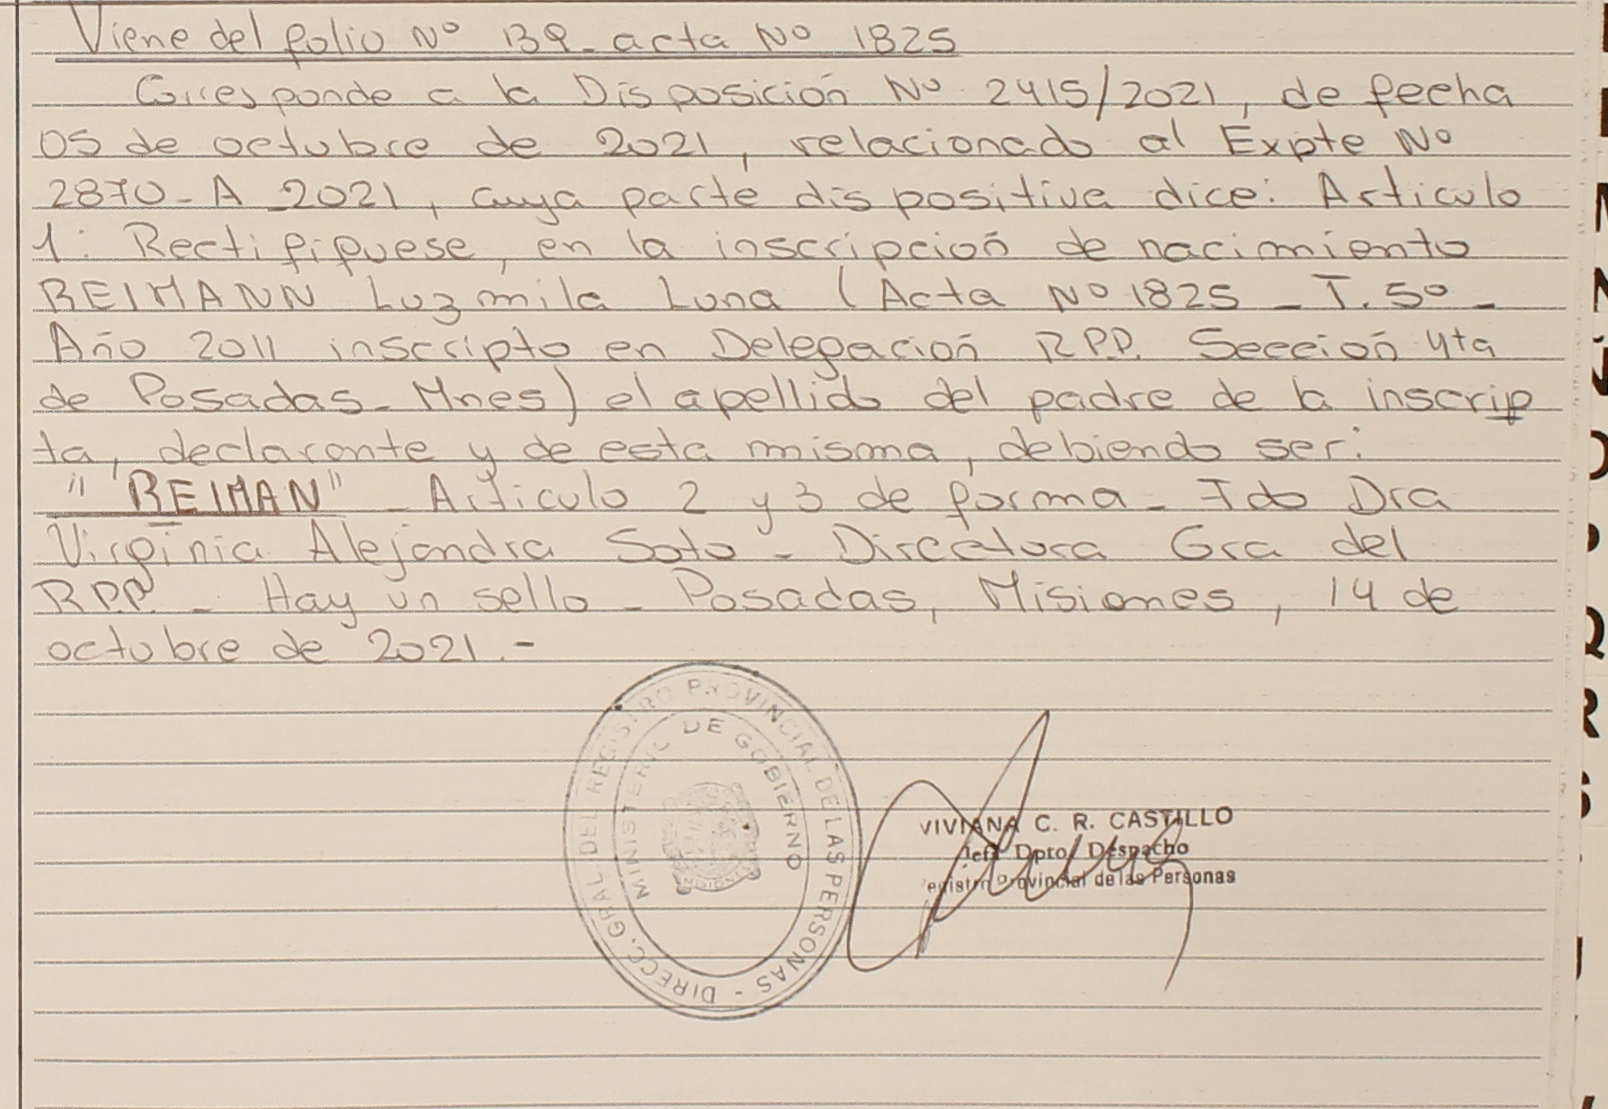 Viene del folio Nº 139- acta Nº 1825
Corresponde a la Disposición Nº 2415/2021, de fecha
05 de octubre de 2021, relacionado al Expte Nº
2870-A 2021, cuya parte dispositiva dice: Articulo
1: Rectififuese, en la inscripción de nacimiento
REIMANN Luzmila Luna (Acta Nº 1825 - T. 5º -
Año 2011 inscripto en Delegación R.P.P. Sección 4ta
de Posadas- Mnes) el apellido del padre de la inscrip
ta, declarante y de esta misma, debiendo ser:
" "REIMAN" - Articulo 2 y 3 de forma - Fdo Dra
Virginia Alejandra Soto - Directora Gra del
R.P.P. - Hay un sello - Posadas, Misiones, 14 de
octubre de 2021.-
DIRECC. GRAL. DEL REGISTRO PROVINCIAL DE LAS PERSONAS -
MINISTERIO DE GOBIERNO
VIVIANA C. R. CASTILLO
Jefe Dpto. Despacho
egistro Provincial de las Personas